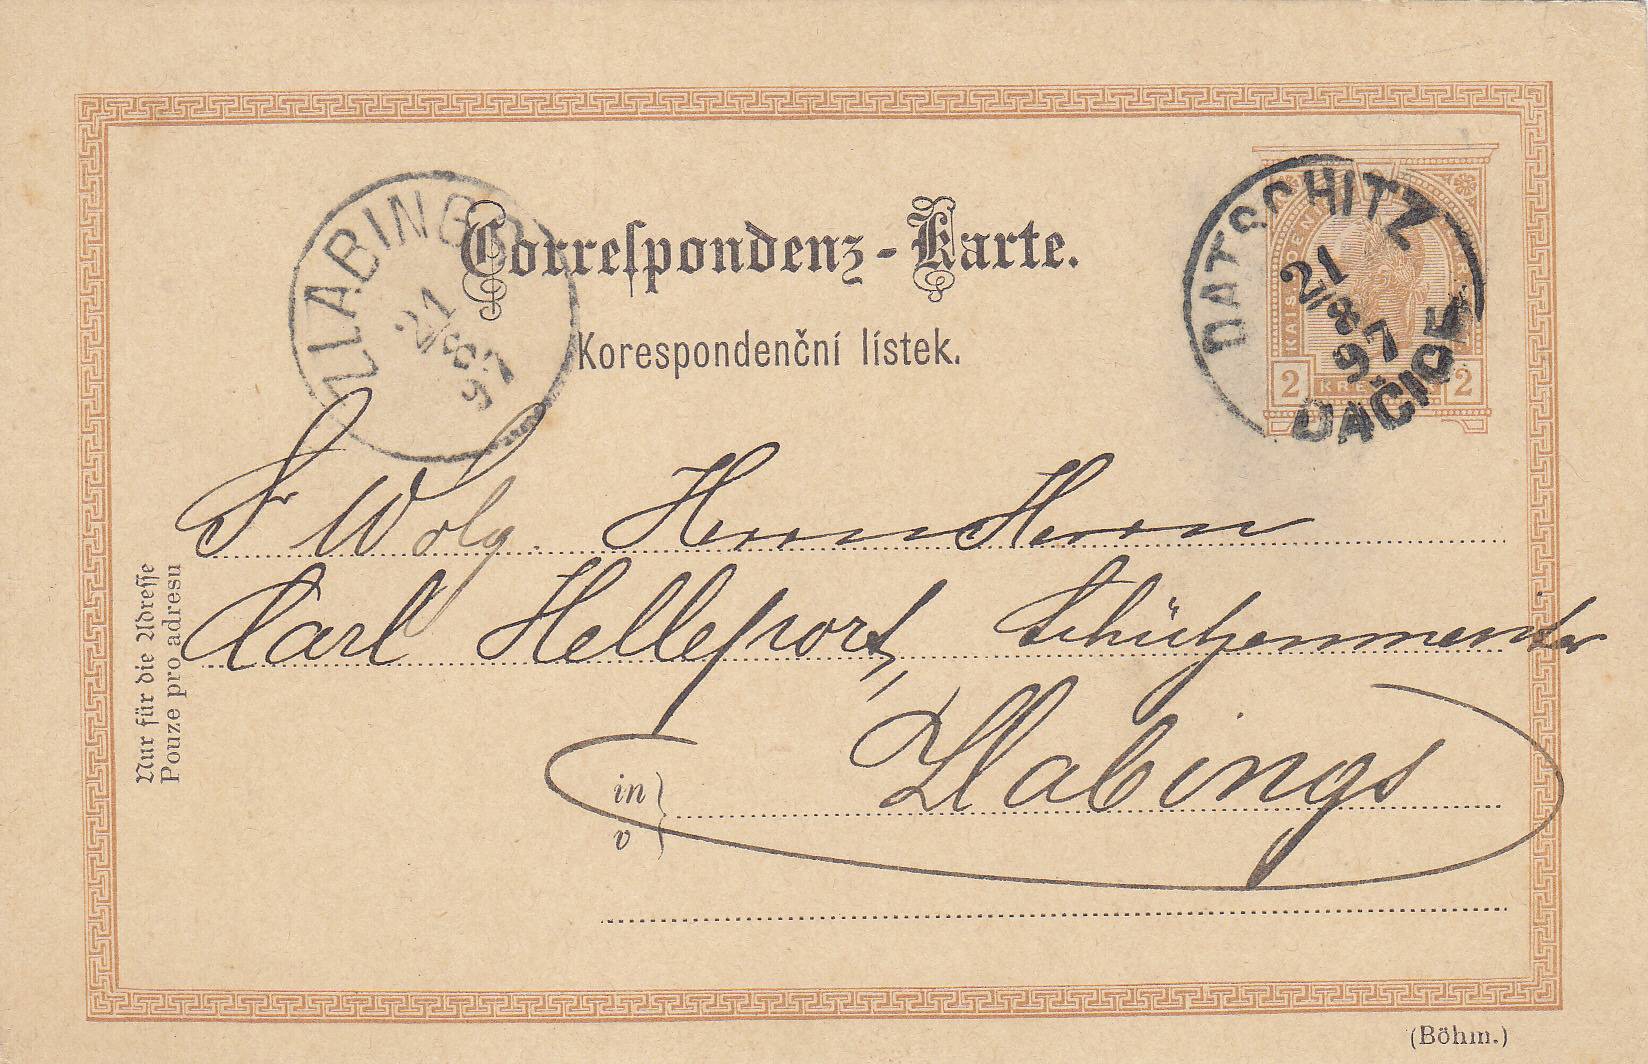 Correspondenz-Karte.
Korespondenční lístek.
ZLABINGS
21/8 97
DATSCHITZ
21/8 97
DAČICE
2 2
Sr Wolg. Herrn Herrn
Carl Helleport, Schützenmeister
in
v
Zlabings
Nur für die Adresse
Pouze pro adresu
(Böhm.)